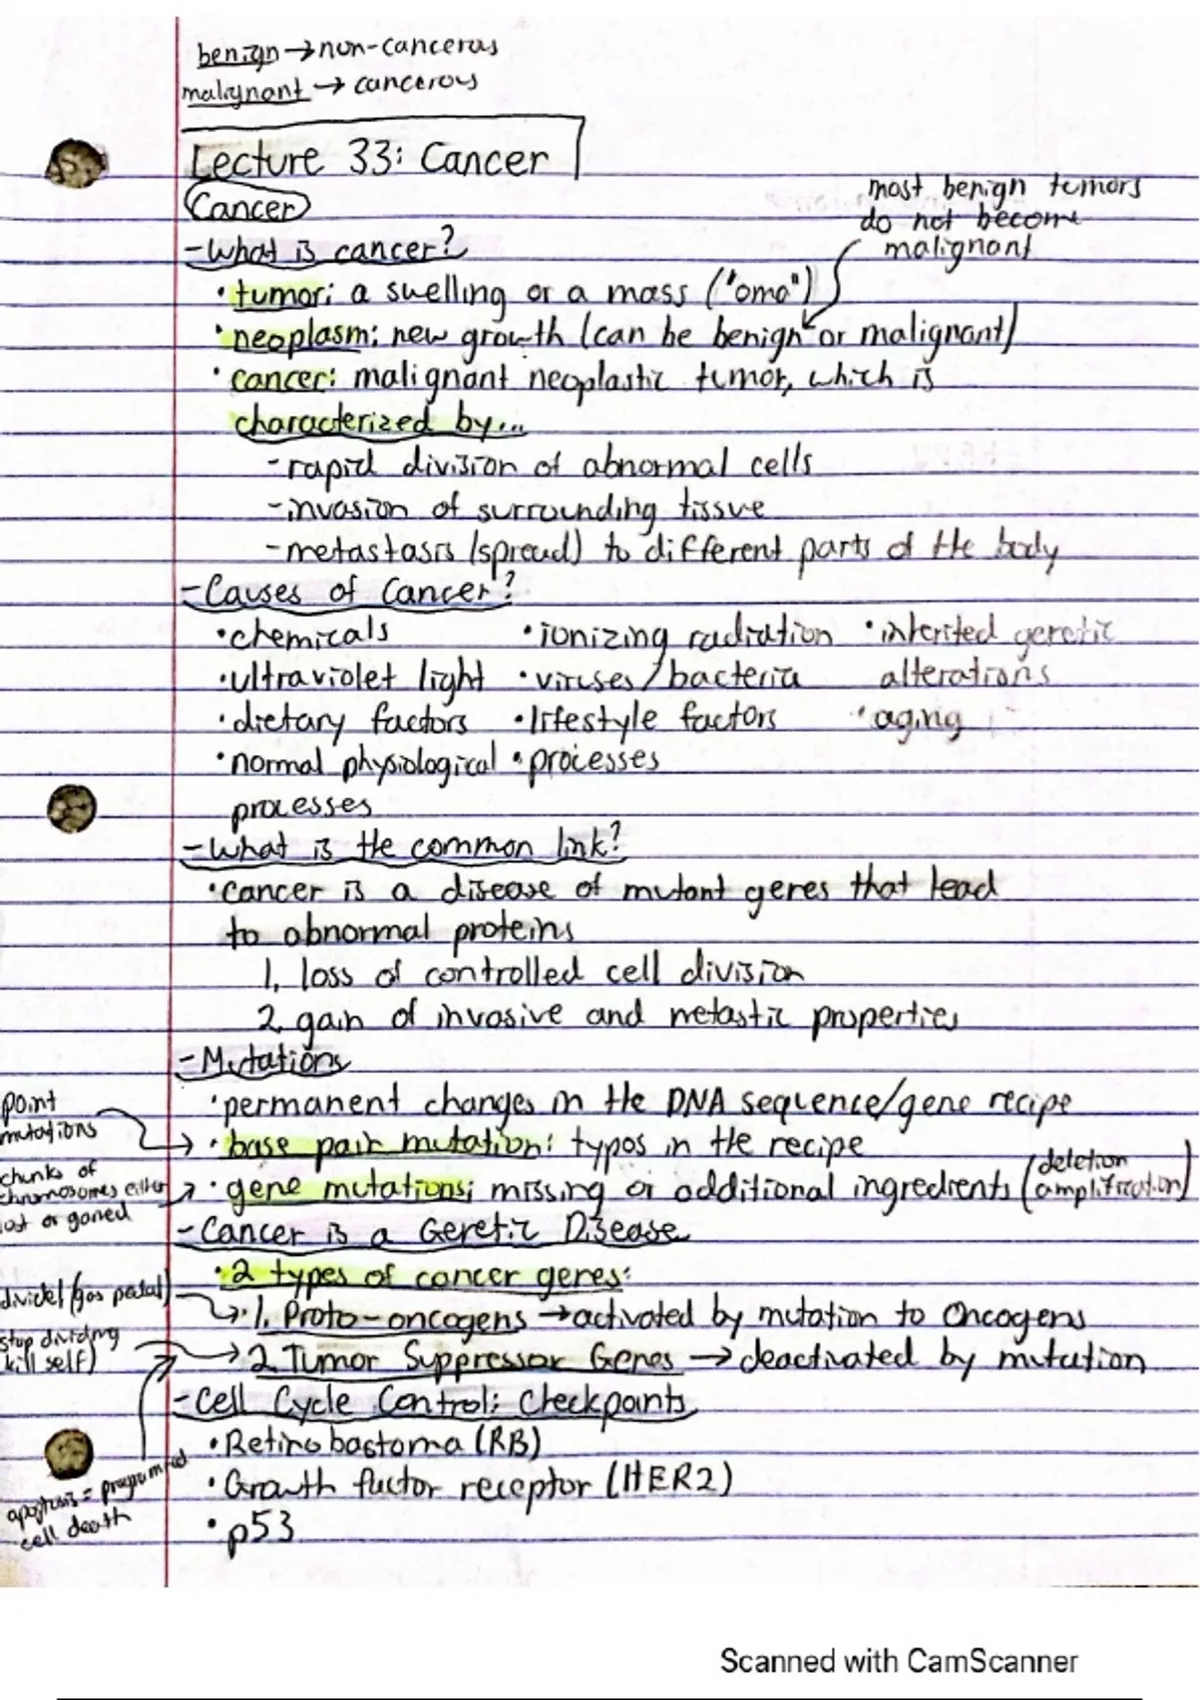 benign → non-cancerous
malignant → cancerous
Lecture 33: Cancer
Cancer
most benign tumors
do not become
malignant
- What is cancer?
• tumor: a swelling or a mass ("oma")
• neoplasm: new growth (can be benign or malignant)
• cancer: malignant neoplastic tumor, which is
characterized by...
- rapid division of abnormal cells
- invasion of surrounding tissue
- metastasis (spread) to different parts of the body
- Causes of Cancer?
• chemicals • ionizing radiation • inherited genetic
• ultraviolet light • viruses/bacteria alterations
• dietary factors • lifestyle factors • aging
• normal physiological • processes
processes
- What is the common link?
• cancer is a disease of mutant genes that lead
to abnormal proteins
1. loss of controlled cell division
2. gain of invasive and metastic properties
- Mutations
• permanent changes in the DNA sequence/gene recipe
point
mutations
• base pair mutation: typos in the recipe
chunks of
chromosomes either
lost or gained
• gene mutations: missing or additional ingredients (deletion
amplification)
- Cancer is a Genetic Disease
• 2 types of cancer genes:
divide! (gas pedal)
• 1. Proto-oncogens → activated by mutation to Oncogens
stop dividing
kill self)
2. Tumor Suppressor Genes → deactivated by mutation
- Cell Cycle Control: Checkpoints
• Retinobastoma (RB)
• Growth factor receptor (HER2)
apoptosis = programmed
cell death
• p53
Scanned with CamScanner